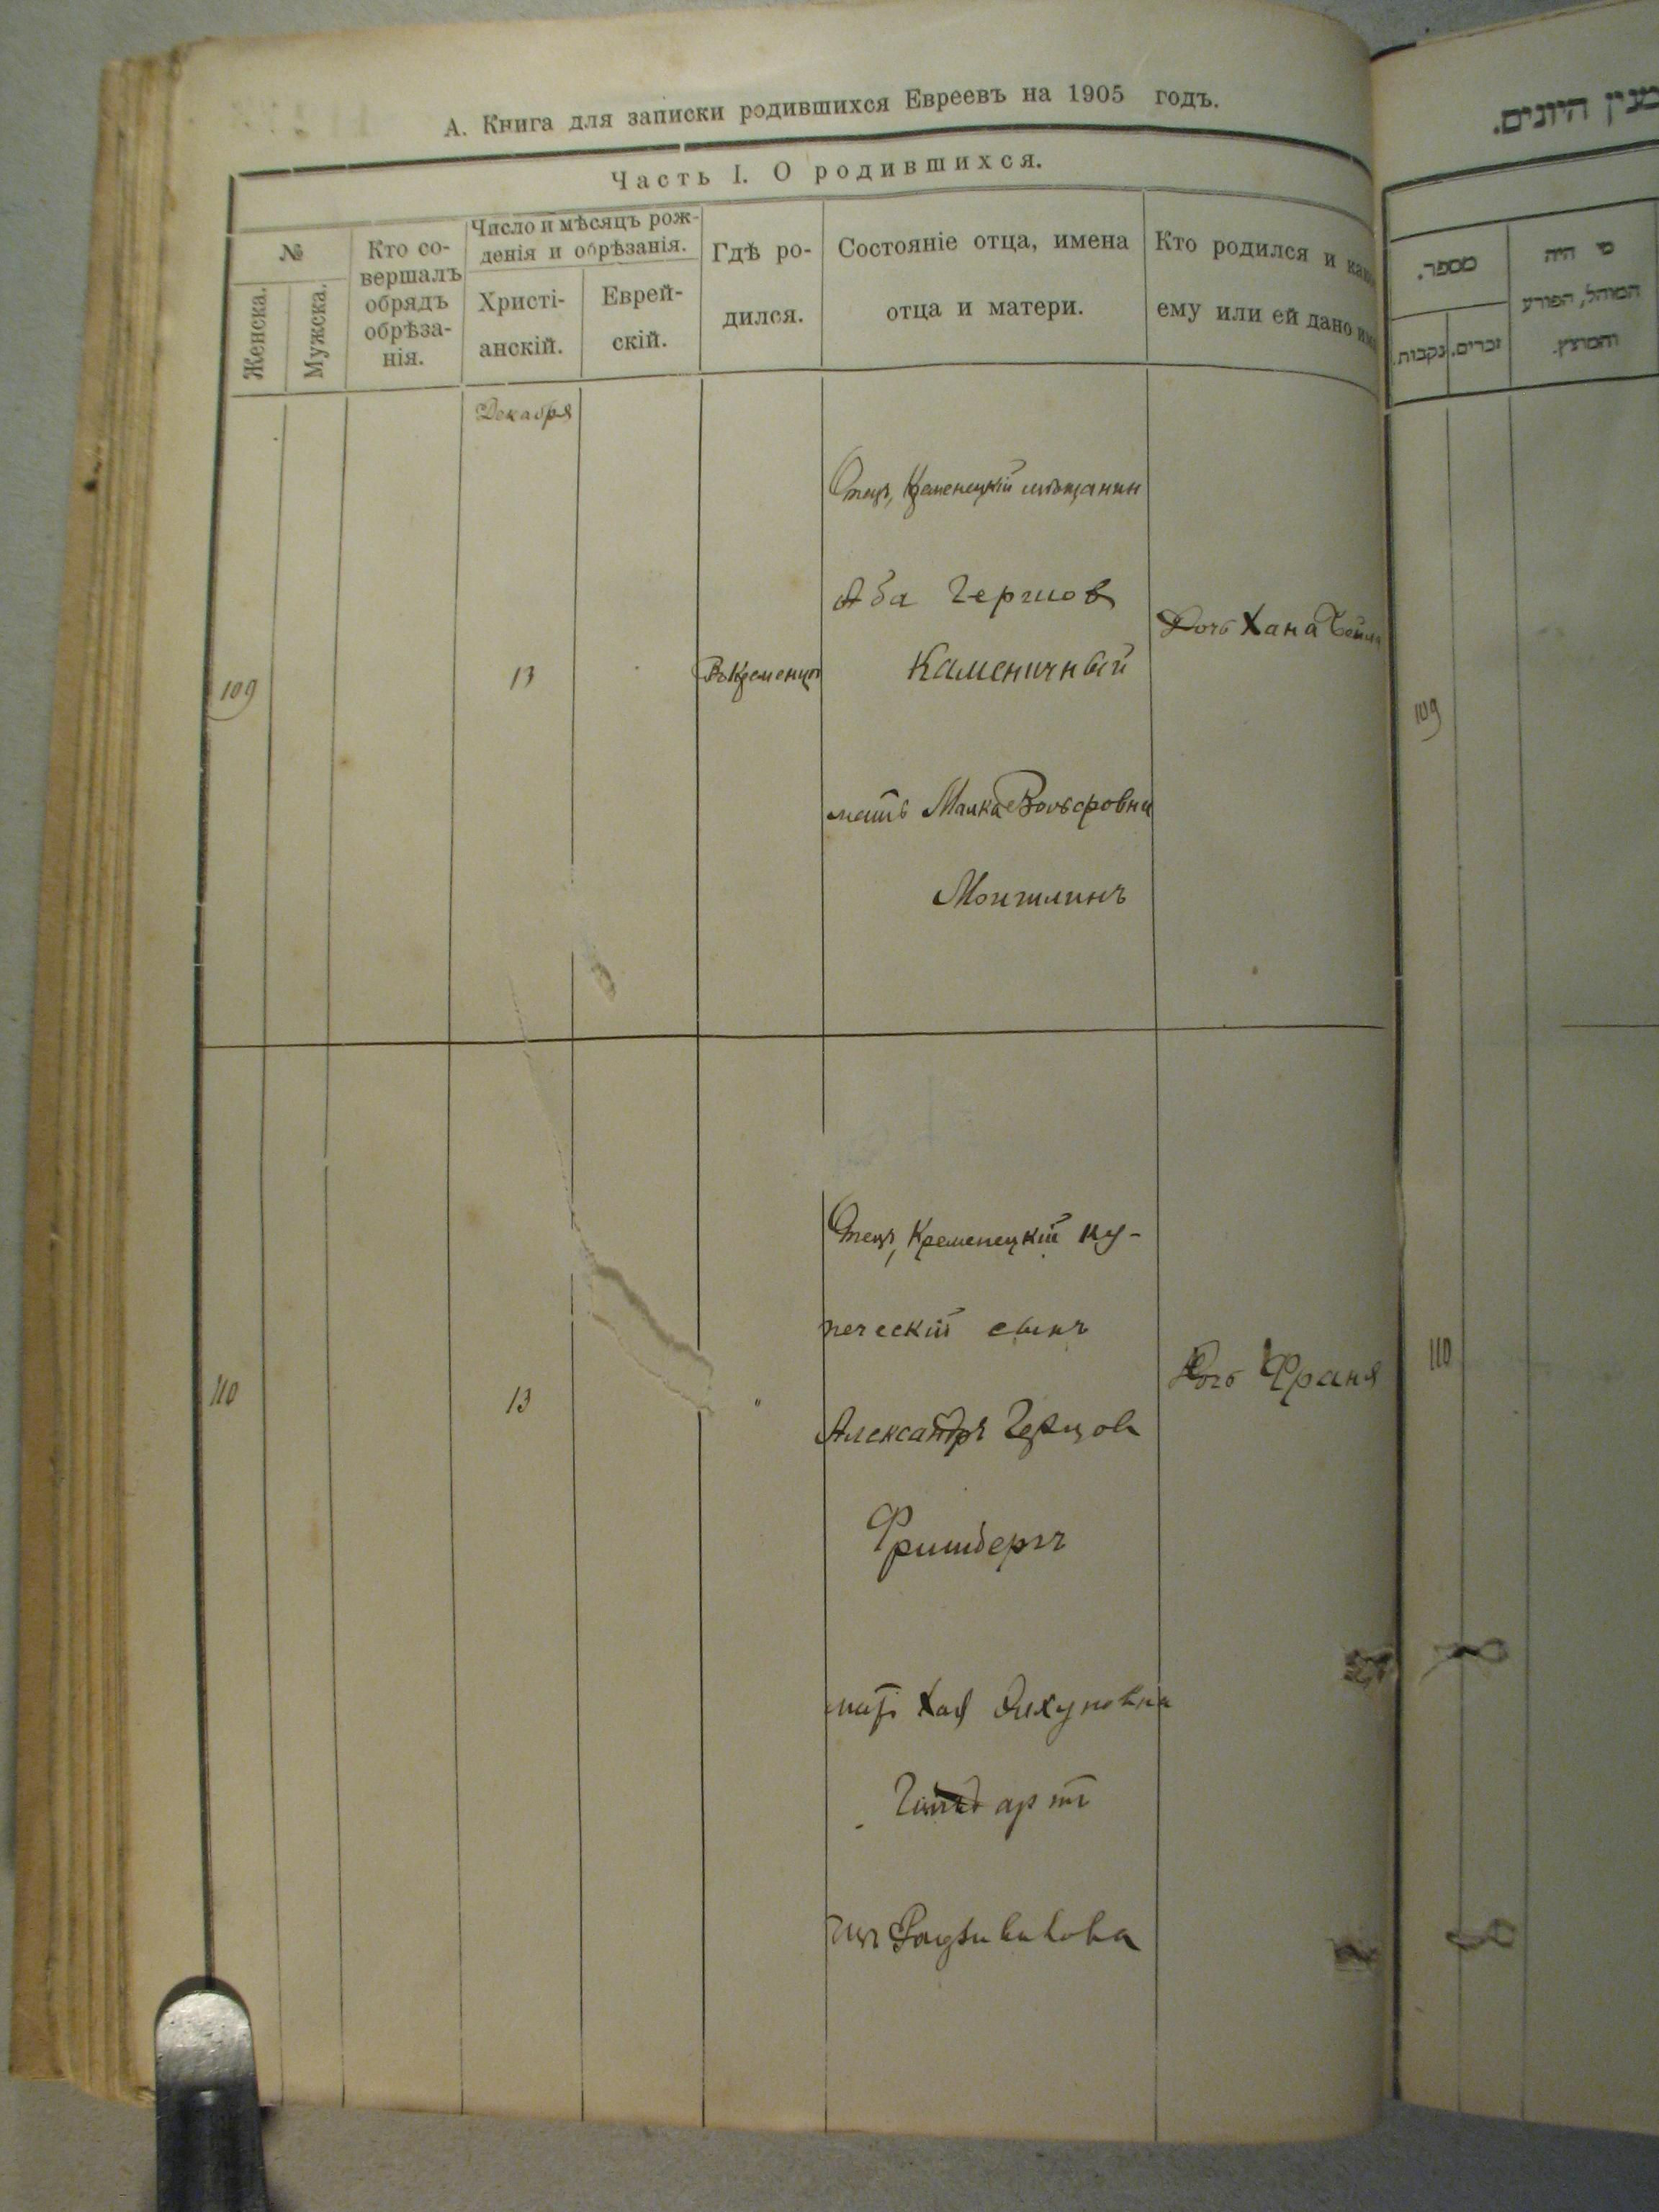 А. Книга для записки родившихся Евреевъ на 1905 годъ.
Часть I. О родившихся.
№
Женска.
Мужска.
Кто со-
вершалъ
обрядъ
обрѣза-
нія.
Число и мѣсяцъ рож-
денія и обрѣзанія.
Христі-
анскій.
Еврей-
скій.
Гдѣ ро-
дился.
Состояніе отца, имена
отца и матери.
Кто родился и како
ему или ей дано имя
Декабря
109
13
Въ Кременцѣ
Отецъ, Кременецкій мѣщанин
Аба Гершов
Каменичный
мать Малка Вольфовна
Дочь Хана Бейла
110
13
"
Отецъ, Кременецкій ку-
печескій сынъ
Александръ Герцов
Фришбергъ
мать Хая
изъ Радзивилова
Дочь Франя
מנין היונים.
מספר.
זכרים.
נקבות.
מי היה
המוהל, הפורע
והמוצץ.
109
110